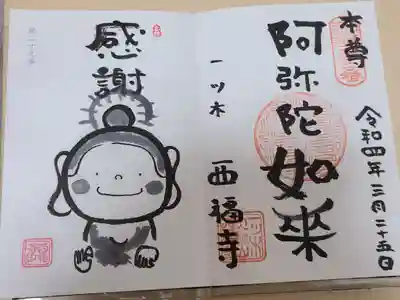 本尊
令和四年三月二十五日
阿弥陀如来
一ツ木 西福寺
感謝